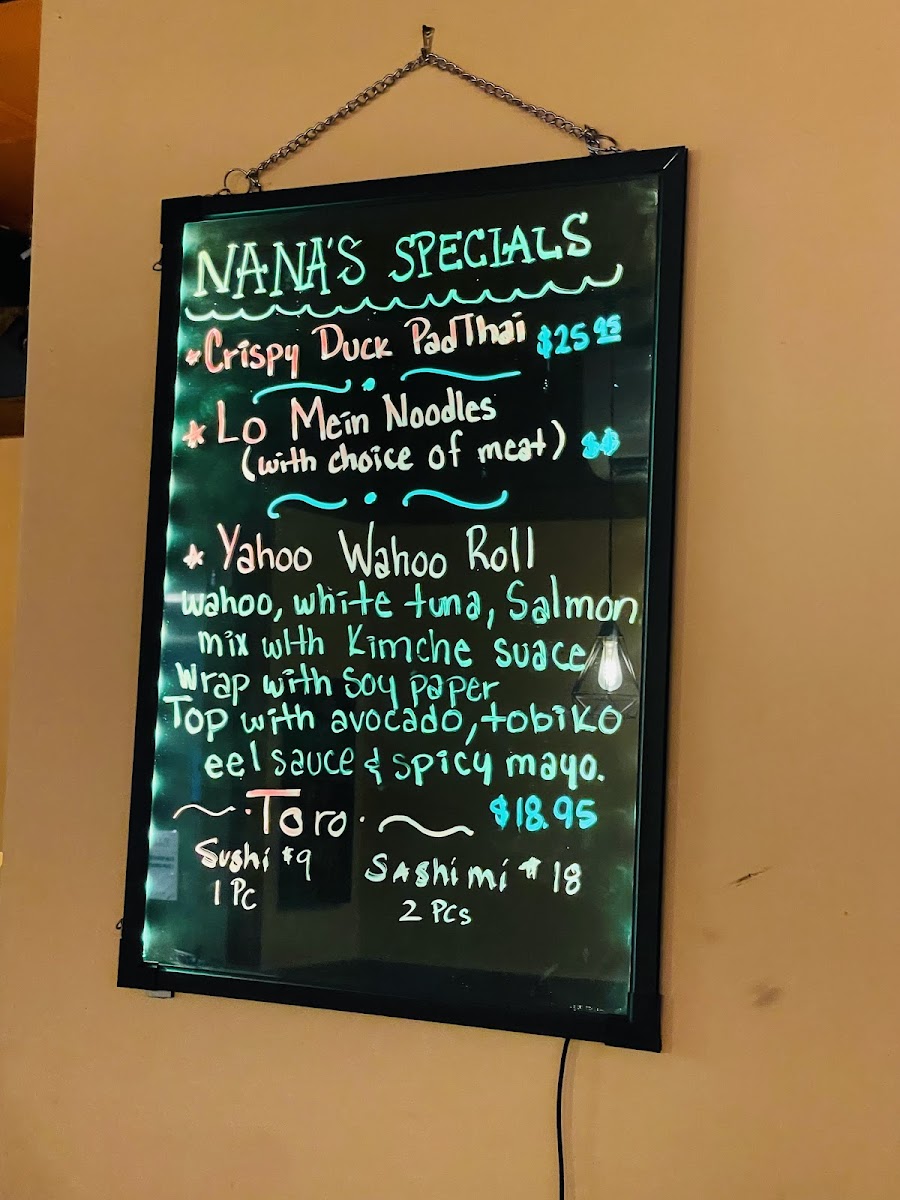 NANA'S SPECIALS
* Crispy Duck PadThai $25.95
* Lo Mein Noodles
(with choice of meat) $$
* Yahoo Wahoo Roll
wahoo, white tuna, Salmon
mix with Kimche suace
Wrap with Soy paper
Top with avocado, tobiko
eel sauce & spicy mayo.
~ · Toro · ~ $18.95
Sushi $9 Sashimi $18
1 Pc 2 Pcs